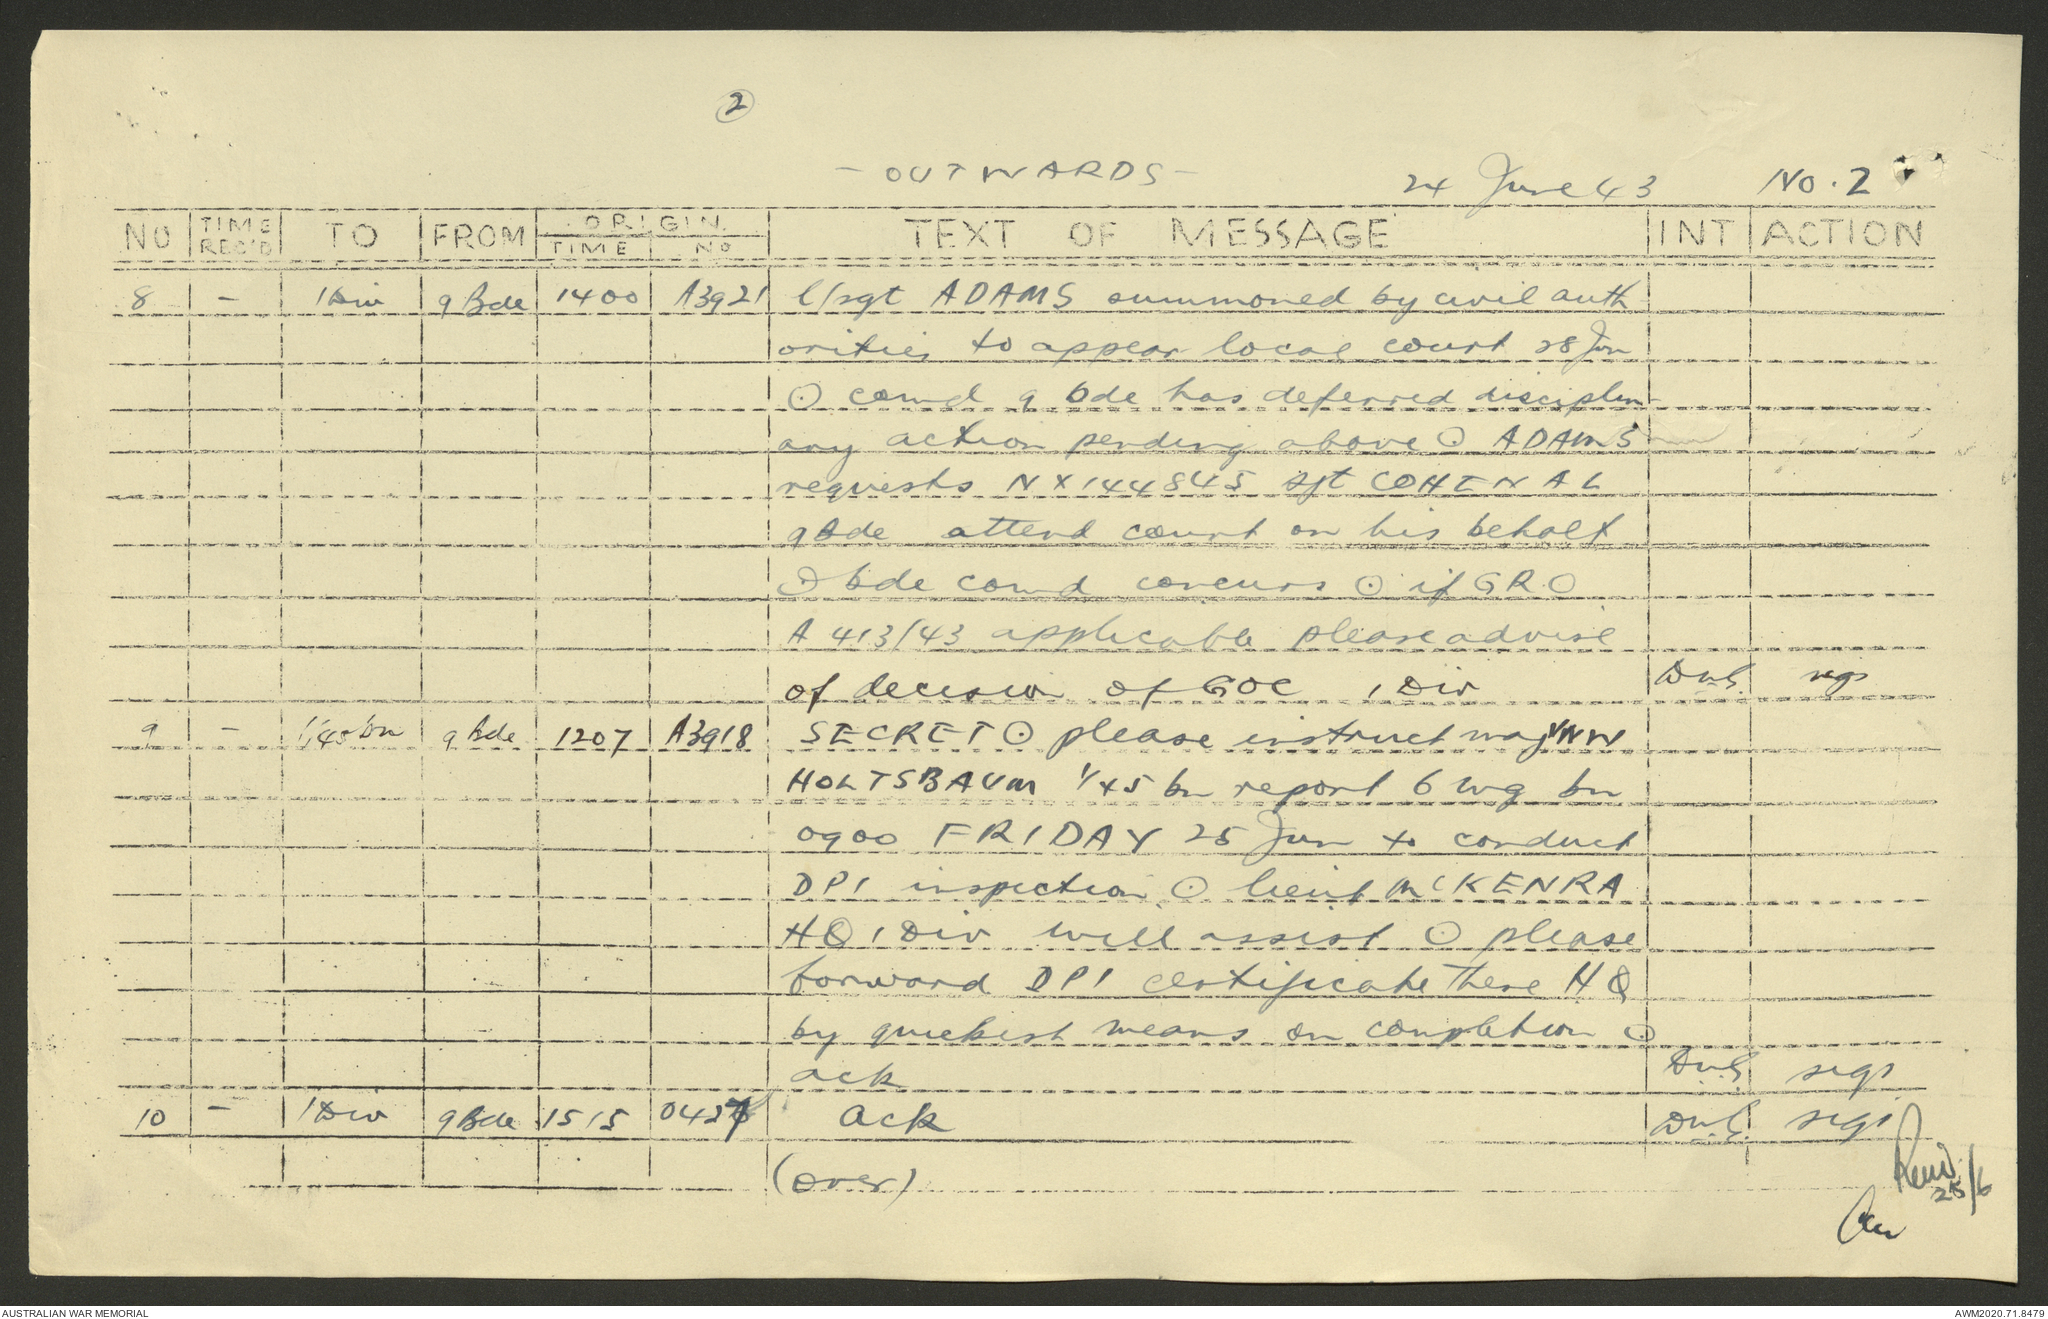 2
- OUTWARDS -
24 June 43 No. 2
NO TIME REC'D TO FROM ORIGIN. TIME NO TEXT OF MESSAGE INT ACTION
8 - 1 Div 9 Bde 1400 A3921 l/sgt ADAMS summoned by civil auth
orities to appear local court 28 Jun
⊙ comd 9 bde has deferred disciplin-
ary action pending above ⊙ ADAMS
requests NX144845 sgt COHEN AL
9 bde attend court on his behalf
⊙ bde comd concurs ⊙ if GRO
A 413/43 applicable please advise
of decision of GOC 1 Div DWG. sigs
9 - 1/45 bn 9 Bde 1207 A3918 SECRET ⊙ please instruct maj
HOLTSBAUM 1/45 bn report 6 wg bn
0900 FRIDAY 25 Jun to conduct
DPI inspection ⊙ lieut McKENRA
HQ 1 Div will assist ⊙ please
forward DPI certificate there HQ
by quickest means on completion ⊙
ack DWG. sigs
10 - 1 Div 9 Bde 1515 ack DWG. sigs
(over)
25/6
AUSTRALIAN WAR MEMORIAL AWM2020.71.8479